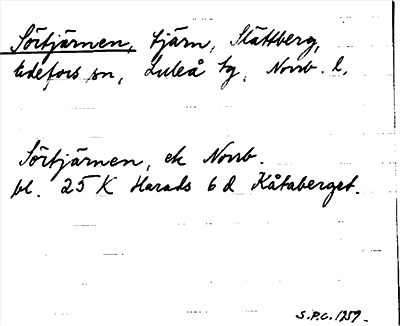 Sörtjärnen, tjärn, Slättberg,
Edefors sn, Luleå tg, Norrb. l.
Sörtjärnen, ek Norrb.
bl. 25 K Harads 6 d Kåtaberget.
S.P.C. 1259.